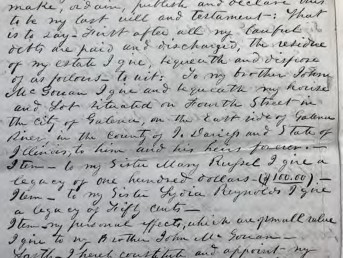 make, ordain, publish and declare this
to be my last will and testament: That
is to say - First after all my lawful
debts are paid and discharged, the residue
of my estate I give, bequeath and dispose
of as follows - to wit: To my brother John
McGouan I give and bequeath my house
and Lot situated on Fourth Street in
the City of Galena, on the East side of Galena
River in the County of Jo Daviess and State of
Illinois, to him and his heirs forever -
Item - to my Sister Mary I give a
legacy of one hundred dollars - ($100.00) -
Item - to my Sister Lydia Reynolds I give
a legacy of Fifty cents -
Item - my personal effects, which are of small value
I give to my Brother John McGouan -
Lastly I hereby constitute and appoint my